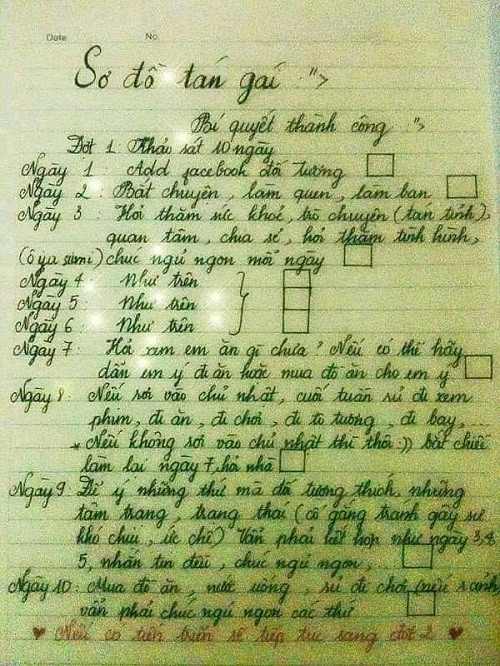 Date
No.
Sơ đồ tán gái :">
Bí quyết thành công :">
Đợt 1: Khảo sát 10 ngày
Ngày 1 : Add facebook đối tượng
Ngày 2 : Bắt chuyện, làm quen, làm bạn
Ngày 3 : Hỏi thăm sức khoẻ, trò chuyện (tán tỉnh),
quan tâm, chia sẻ, hỏi thăm tình hình,
(ô ya sumi) chúc ngủ ngon mỗi ngày
Ngày 4 : Như trên
Ngày 5 : Như trên
Ngày 6 : Như trên
Ngày 7 : Hỏi xem em ăn gì chưa? Nếu có thể hãy
dẫn em ý đi ăn hoặc mua đồ ăn cho em ý
Ngày 8 : Nếu rơi vào chủ nhật, cuối tuần rủ đi xem
phim, đi ăn, đi chơi, đi tô tượng, đi bay, ...
* Nếu không rơi vào chủ nhật thì thôi :)) bắt chiếc
làm lại ngày 7, hỏi nhà
Ngày 9 : Để ý những thứ mà đối tượng thích, những
tâm trạng, trạng thái (cố gắng tránh gây sự
khó chịu, ức chế) Vẫn phải kết hợp như ngày 3,4,
5, nhắn tin đều, chúc ngủ ngon,
Ngày 10 : Mua đồ ăn, nước uống, rủ đi chơi (nếu rảnh)
vẫn phải chúc ngủ ngon các thứ
♥ Nếu có tiến triển sẽ tiếp tục sang đợt 2 ♥